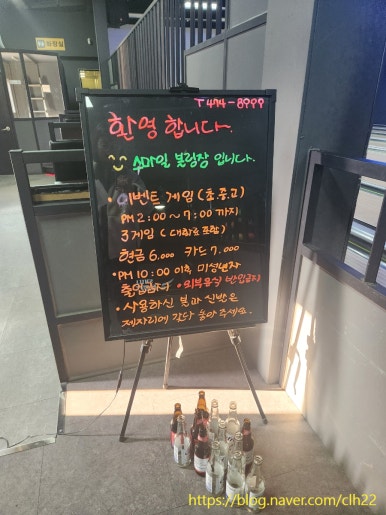 화장실
T 474-8999
환영 합니다.
스마일 볼링장 입니다.
• 이벤트 게임 (초중고)
PM 2:00 ~ 7:00 까지
3게임 (대화료 포함)
현금 6.000 카드 7.000
• PM 10:00 이후 미성년자
출입금지 • 외부음식 반입금지
• 사용하신 볼과 신발은
제자리에 갖다 놓아 주세요.
https://blog.naver.com/clh22